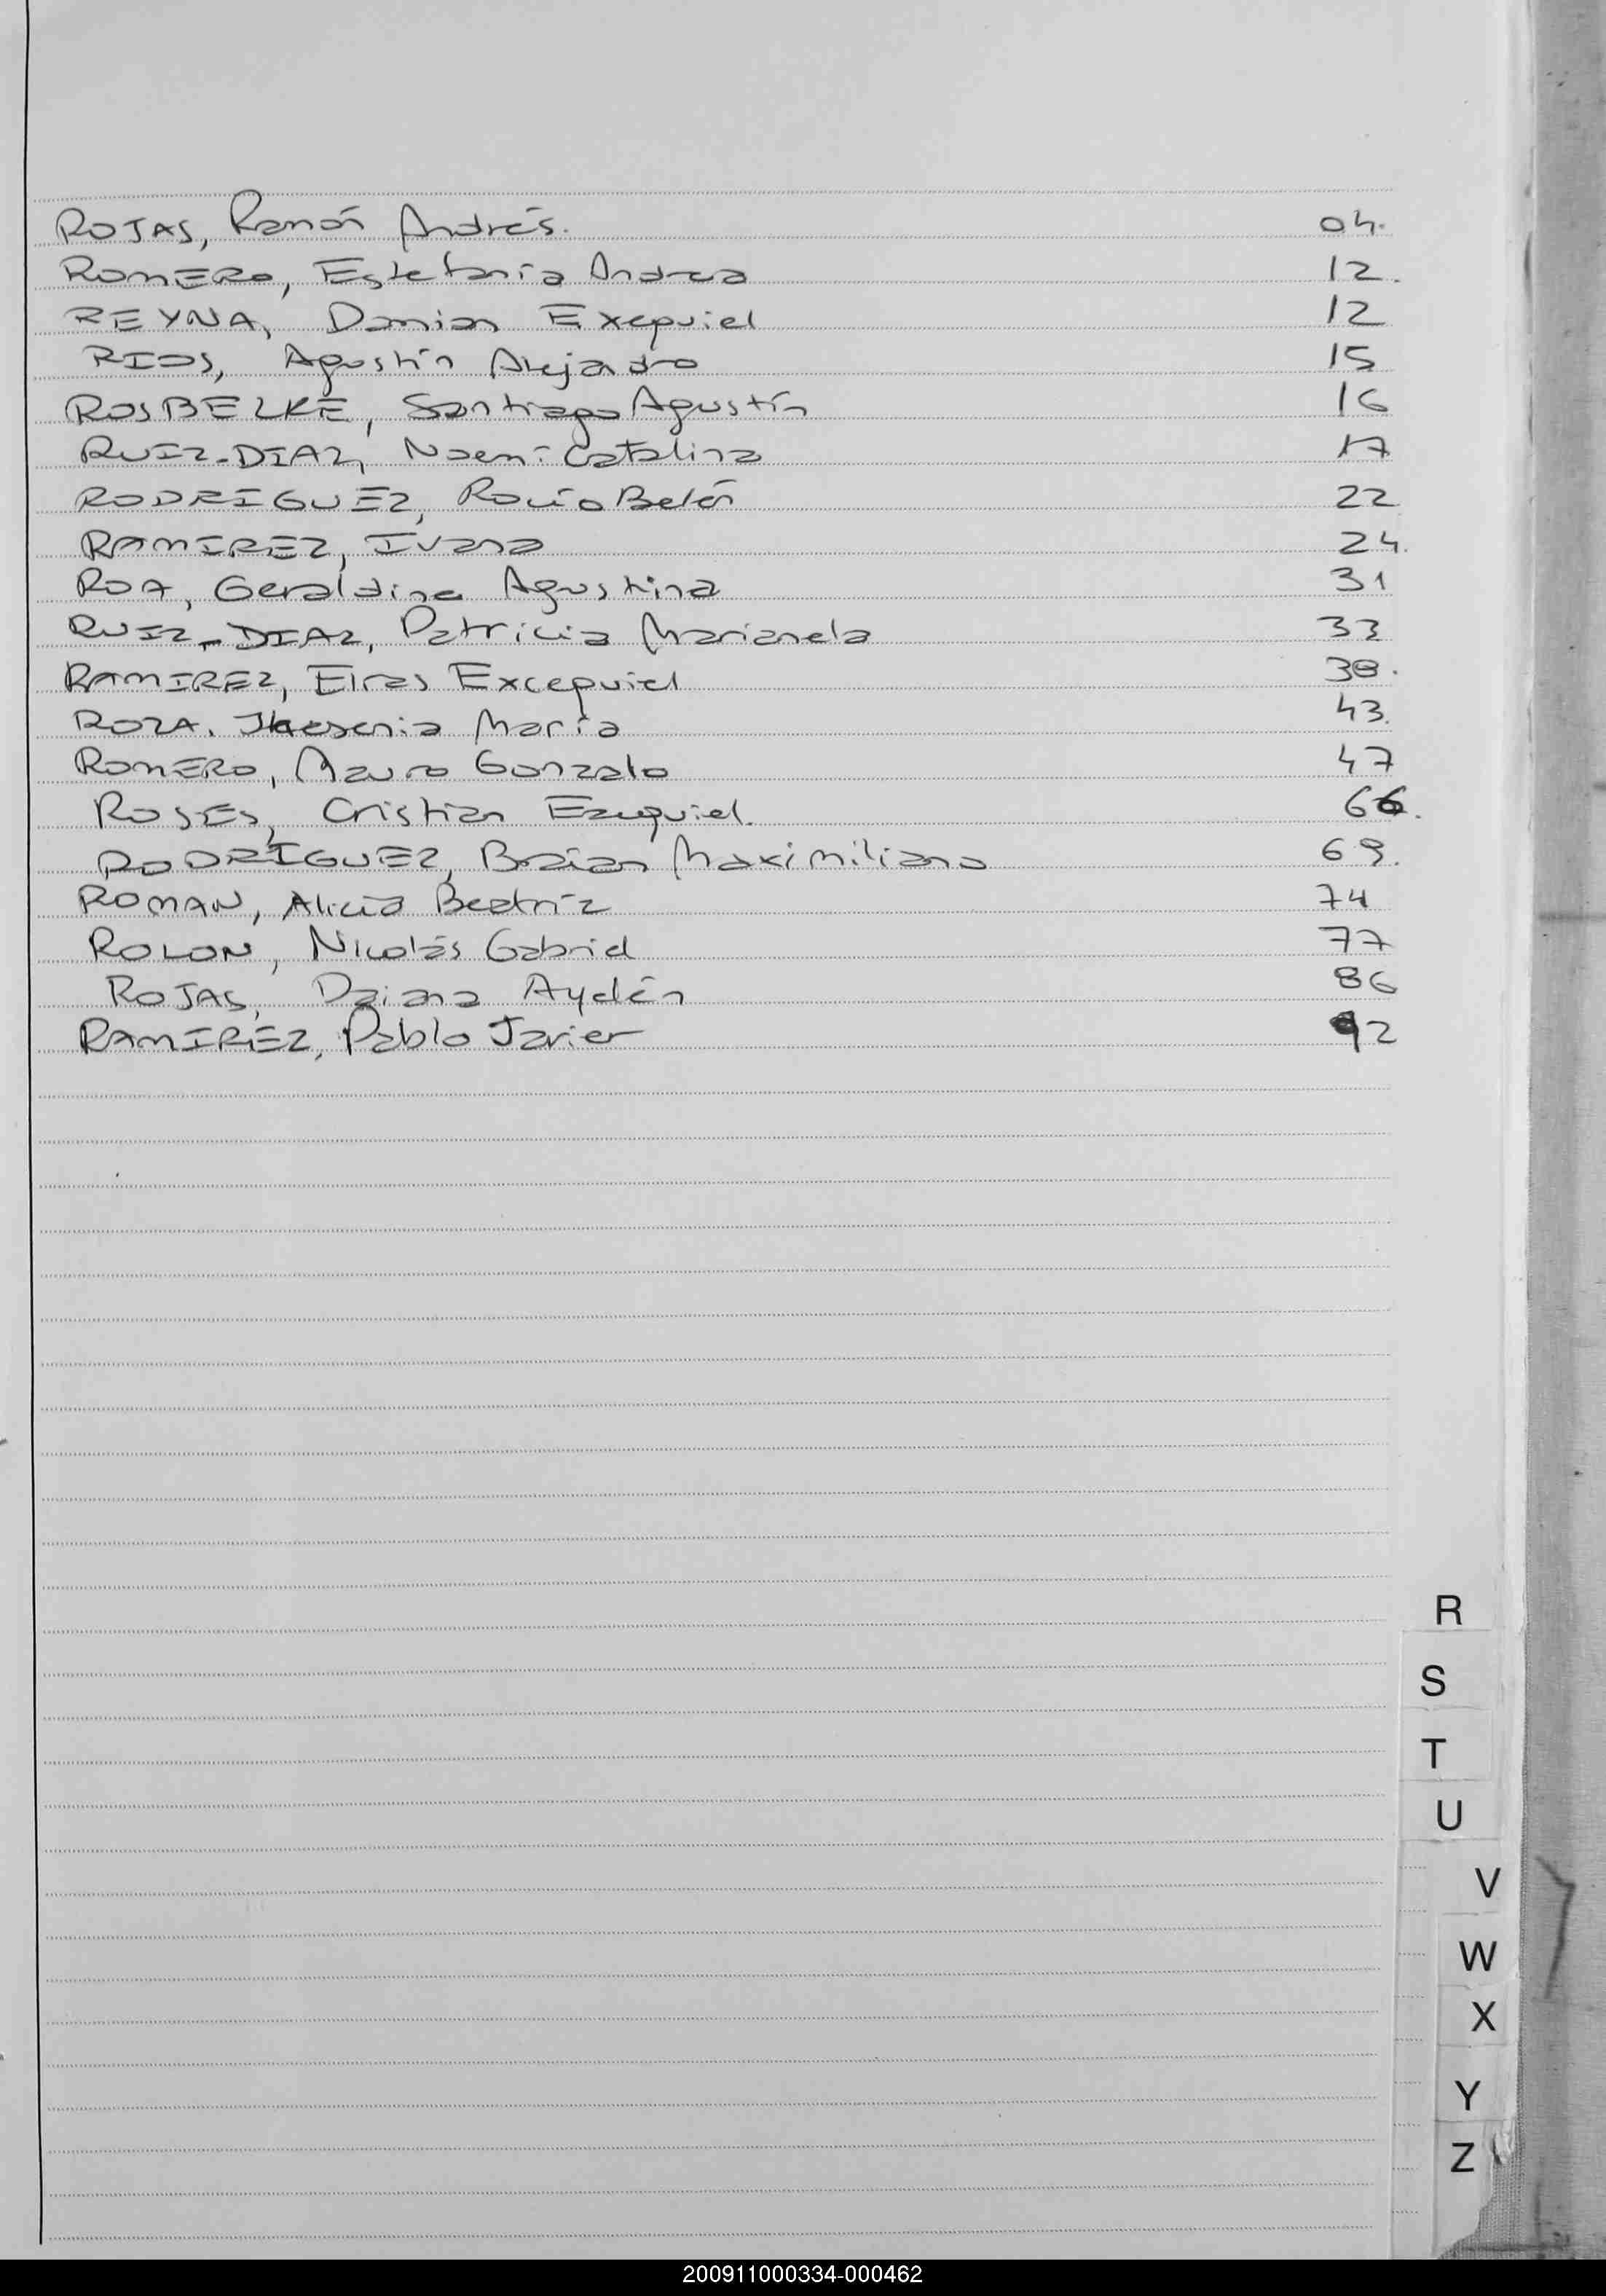 ROJAS, Ramón Andrés. 04.
ROMERO, Estefanía Andrea 12.
REYNA, Damian Exequiel 12
RIOS, Agustín Alejandro 15
ROSBELKE, Santiago Agustín 16
RUIZ-DIAZ, Noemí Catalina 17
RODRIGUEZ, Rocío Belén 22
RAMIREZ, Ivana 24.
ROA, Geraldine Agustina 31
RUIZ-DIAZ, Patricia Marianela 33
RAMIREZ, Elias Excequiel 38.
ROZA. Jhesenia María 43.
ROMERO, Mauro Gonzalo 47
ROSES, Cristian Ezequiel. 66.
RODRÍGUEZ, Braian Maximiliano 69.
ROMAN, Alicia Beatríz 74
ROLON, Nicolás Gabriel 77
ROJAS, Daiana Aydén 86
RAMIREZ, Pablo Javier 92
R
S
T
U
V
W
X
Y
Z
200911000334-000462